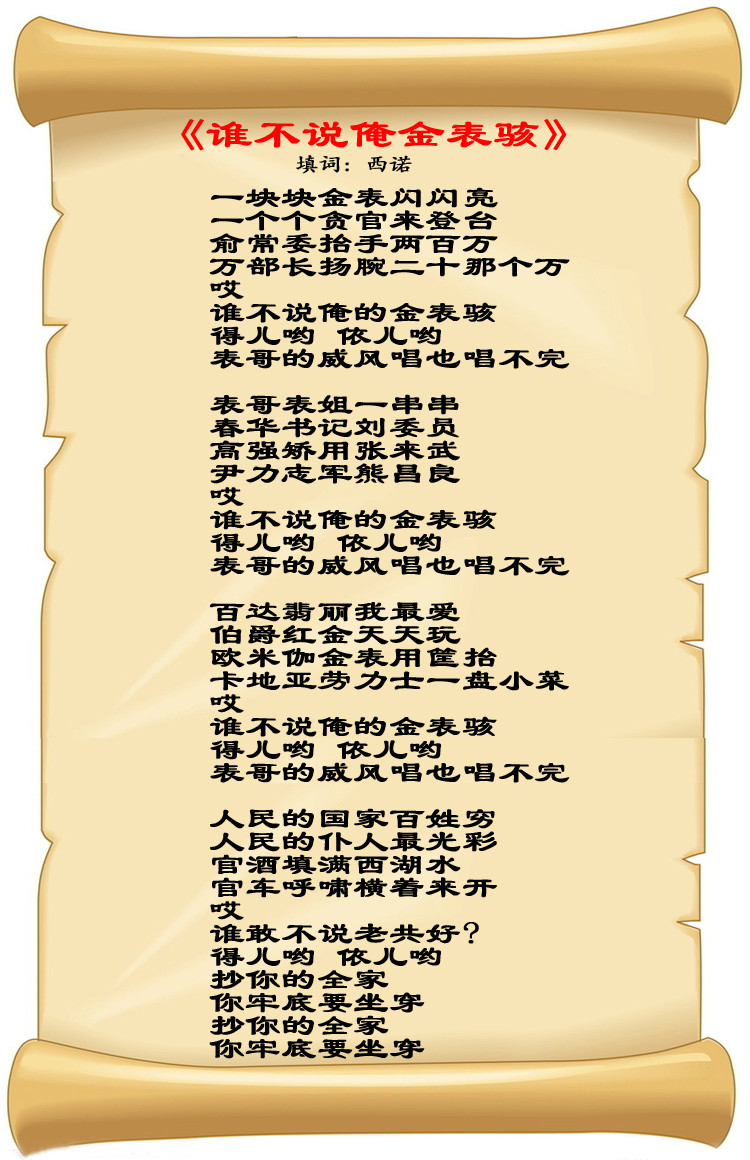 《谁不说俺金表骇》
填词：西诺
一块块金表闪闪亮
一个个贪官来登台
俞常委抬手两百万
万部长扬腕二十那个万
哎
谁不说俺的金表骇
得儿哟 依儿哟
表哥的威风唱也唱不完
表哥表姐一串串
春华书记刘委员
高强矫用张来武
尹力志军熊昌良
哎
谁不说俺的金表骇
得儿哟 依儿哟
表哥的威风唱也唱不完
百达翡丽我最爱
伯爵红金天天玩
欧米伽金表用筐抬
卡地亚劳力士一盘小菜
哎
谁不说俺的金表骇
得儿哟 依儿哟
表哥的威风唱也唱不完
人民的国家百姓穷
人民的仆人最光彩
官酒填满西湖水
官车呼啸横着来开
哎
谁敢不说老共好?
得儿哟 依儿哟
抄你的全家
你牢底要坐穿
抄你的全家
你牢底要坐穿